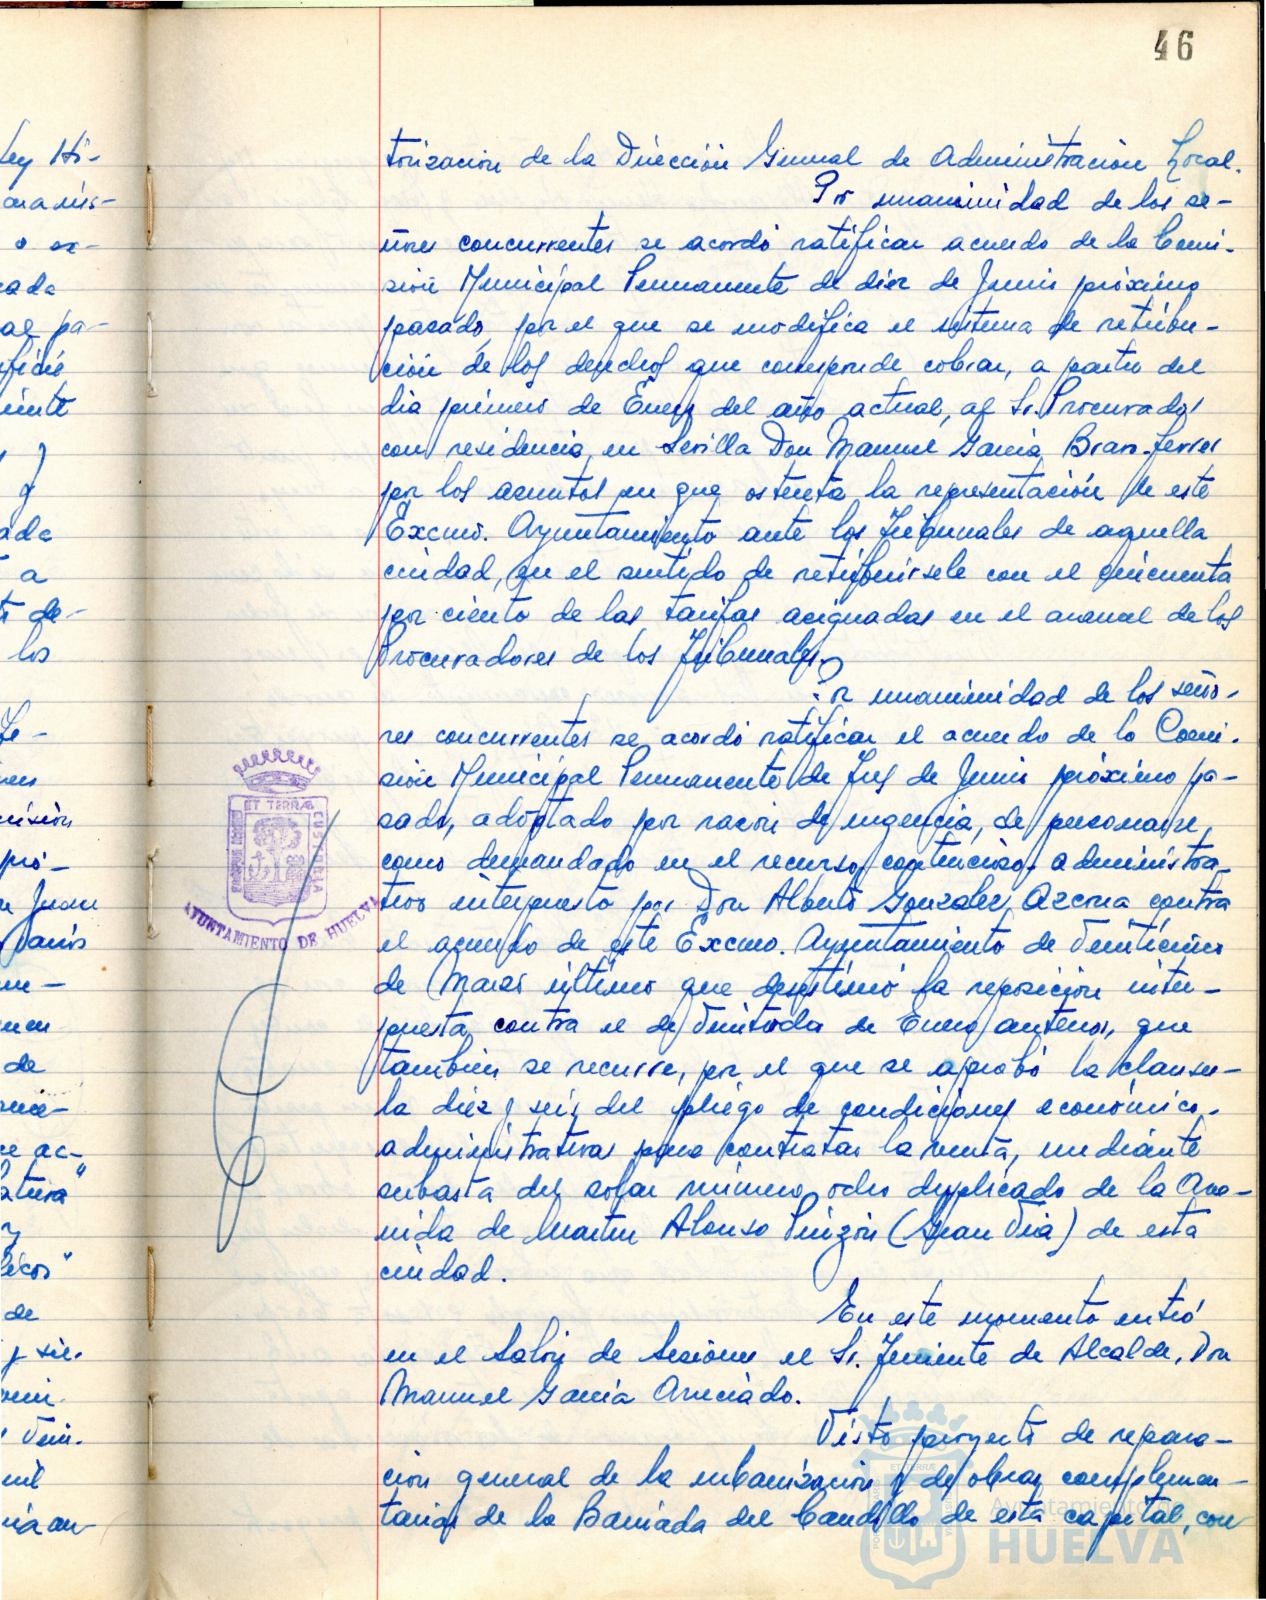 46
torización de la Dirección General de Administración Local.
Por unanimidad de los se-
ñores concurrentes se acordó ratificar acuerdo de la Comi-
sión Municipal Permanente de diez de Junio próximo
pasado, por el que se modifica el sistema de retribu-
ción de los derechos que corresponde cobrar, a partir del
dia primero de Enero del año actual, al Sr. Procurador
con residencia en Sevilla Don Manuel García Bravo-Ferrer
por los asuntos en que ostenta la representación de este
Excmo. Ayuntamiento ante los Tribunales de aquella
ciudad, en el sentido de retribuirsele con el cincuenta
por ciento de las tarifas asignadas en el arancel de los
Procuradores de los Tribunales.
Por unanimidad de los seño-
res concurrentes se acordó ratificar el acuerdo de la Comi-
sión Municipal Permanente de tres de Junio próximo pa-
sado, adoptado por razón de urgencia, de personarse,
como demandado en el recurso contencioso-administra-
tivo interpuesto por Don Alberto González Azcona contra
el acuerdo de este Excmo. Ayuntamiento de veinticinco
de Marzo último que desestimó la reposición inter-
puesta contra el de de Enero anterior, que
también se recurre, por el que se aprobó la clausu-
la diez y seis del pliego de condiciones económico-
administrativas para contratar la venta, mediante
subasta del solar número ocho duplicado de la Ave-
nida de Martín Alonso Pinzón (Gran Via) de esta
ciudad.
En este momento entró
en el Salón de Sesiones el Sr. Teniente de Alcalde, Don
Manuel García
Visto proyecto de repara-
ción general de la urbanización y de obras complemen-
tarias de la Barriada del Caudillo de esta capital, con
ET TERRÆ CUSTODIA
AYUNTAMIENTO DE HUELVA
Ayuntamiento de
HUELVA